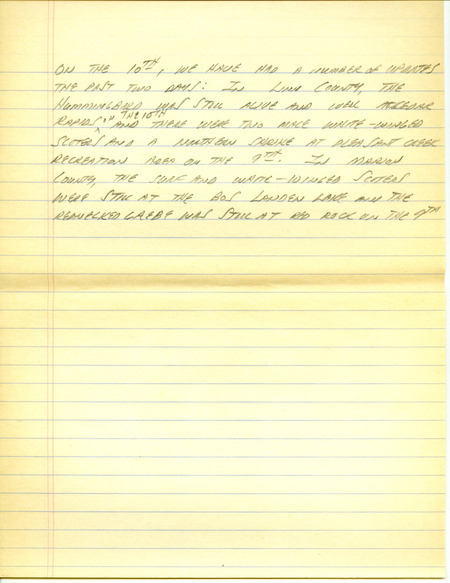 ON THE 10TH, WE HAVE HAD A NUMBER OF UPDATES
THE PAST TWO DAYS: IN LINN COUNTY, THE
HUMMINGBIRD WAS STILL ALIVE AND WELL AT CEDAR
RAPIDS ON THE 10TH AND THERE WERE TWO MALE WHITE-WINGED
SCOTERS AND A NORTHERN SHRIKE AT PLEASANT CREEK
RECREATION AREA ON THE 9TH. IN MARION
COUNTY, THE SURF AND WHITE-WINGED SCOTERS
WERE STILL AT THE BOS LANDEN LAKE AND THE
REDNECKED GREBE WAS STILL AT RED ROCK ON THE 9TH